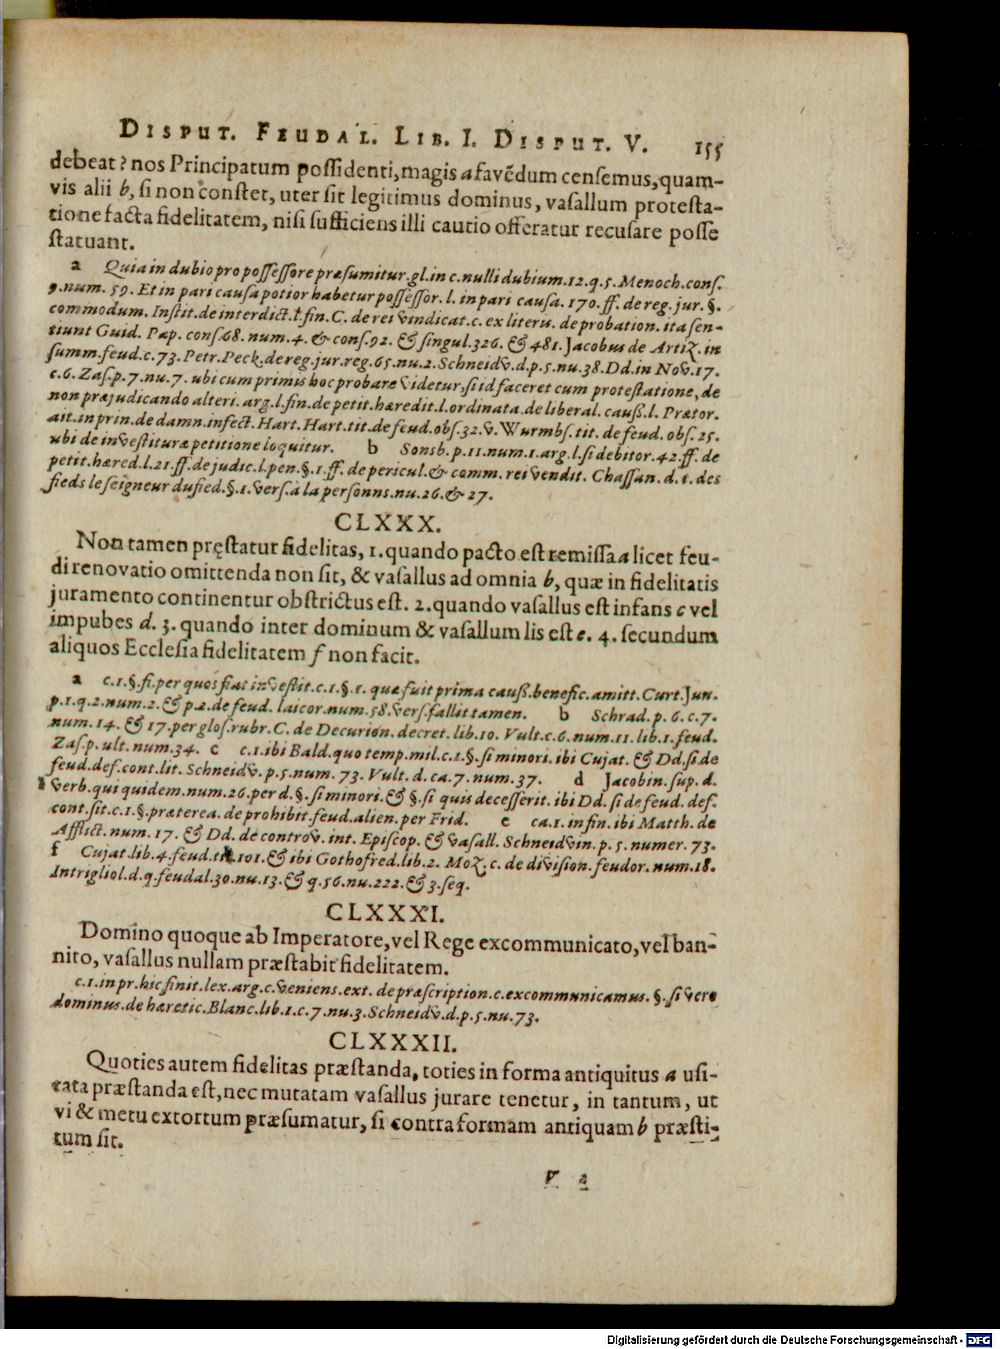 DISPUT. FEUDAL. LIB. I. DISPUT. V. 155
debeat? nos Principatum possidenti, magis a favēdum censemus, quam-
vis alii b, si non constet, uter sit legitimus dominus, vasallum protesta-
tione facta fidelitatem, nisi sufficiens illi cautio offeratur recusare posse
statuant.
a Quia in dubio pro possessore præsumitur. gl. in c. nulli dubium. 12. q. 5. Menoch. cons.
9. num. 59. Et in pari causa potior habetur possessor. l. in pari causa. 170. ff. de reg. jur. §.
commodum. Instit. de interdict. l. fin. C. de rei vindicat. c. ex literis. de probation. ita sen-
tiunt Guid. Pap. cons. 68. num. 4. & cons. 92. & singul. 326. & 481. Jacobus de Artiz. in
summ. feud. c. 73. Petr. Peck. de reg. jur. reg. 65. nu. 2. Schneidv. d. p. 5. nu. 38. Dd. in Nov. 17.
c. 6. Zas. p. 7. nu. 7. ubi cum primis hoc probare videtur, si id faceret cum protestatione, de
non præjudicando alteri. arg. l. fin. de petit. hæredit. l. ordinata. de liberal. causs. l. Prætor.
ait. in prin. de damn. infect. Hart. Hart. tit. de feud. obs. 32. v. Wurmbs. tit. de feud. obs. 25.
ubi de investituræ petitione loquitur. b Sonsb. p. 11. num. 1. arg. l. si debitor. 42. ff. de
petit. hæred. l. 21. ff. de judic. l. pen. §. 1. ff. de pericul. & comm. rei vendit. Chassan. d. t. des
fieds le seigneur du fied. §. 1. vers. à la personns. nu. 26. & 27.
CLXXX.
Non tamen pręstatur fidelitas, 1. quando pacto est remissa a licet feu-
di renovatio omittenda non sit, & vasallus ad omnia b, quæ in fidelitatis
juramento continentur obstrictus est. 2. quando vasallus est infans c vel
impubes d. 3. quando inter dominum & vasallum lis est e. 4. secundum
aliquos Ecclesia fidelitatem f non facit.
a c. 1. §. fi. per quos fiat investit. c. 1. §. 1. quæ fuit prima causs. benefic. amitt. Curt. Jun.
p. 1. q. 2. num. 2. & p. 2. de feud. laicor. num. 58. vers. fallit tamen. b Schrad. p. 6. c. 7.
num. 14. & 17. per glos. rubr. C. de Decurion. decret. lib. 10. Vult. c. 6. num. 11. lib. 1. feud.
Zas. p. ult. num. 34. c c. 1. ibi Bald. quo temp. mil. c. 1. §. si minori. ibi Cujat. & Dd. si de
feud. def. cont. lit. Schneidv. p. 5. num. 73. Vult. d. ca. 7. num. 37. d Jacobin. sup. d.
verb. qui quidem. num. 26. per d. §. si minori. & §. si quis decesserit. ibi Dd. si de feud. def.
cont. sit. c. 1. §. præterea. de prohibit. feud. alien. per Frid. e ca. 1. in fin. ibi Matth. de
Afflict. num. 17. & Dd. de controv. int. Episcop. & vasall. Schneidvin. p. 5. numer. 73.
f Cujat. lib. 4. feud. tit. 101. & ibi Gothofred. lib. 2. Moz. c. de division. feudor. num. 18.
Intrigliol. d. q. feudal. 30. nu. 13. & q. 56. nu. 222. & 3. seq.
CLXXXI.
Domino quoque ab Imperatore, vel Rege excommunicato, vel ban-
nito, vasallus nullam præstabit fidelitatem.
c. 1. in pr. hic finit. lex. arg. c. veniens. ext. de præscription. c. excommunicamus. §. si vero
dominus. de hæretic. Blanc. lib. 1. c. 7. nu. 3. Schneidv. d. p. 5. nu. 73.
CLXXXII.
Quoties autem fidelitas præstanda, toties in forma antiquitus a usi-
tata præstanda est, nec mutatam vasallus jurare tenetur, in tantum, ut
vi & metu extortum præsumatur, si contra formam antiquam b præsti-
tum sit.
V 2
Digitalisierung gefördert durch die Deutsche Forschungsgemeinschaft - DFG